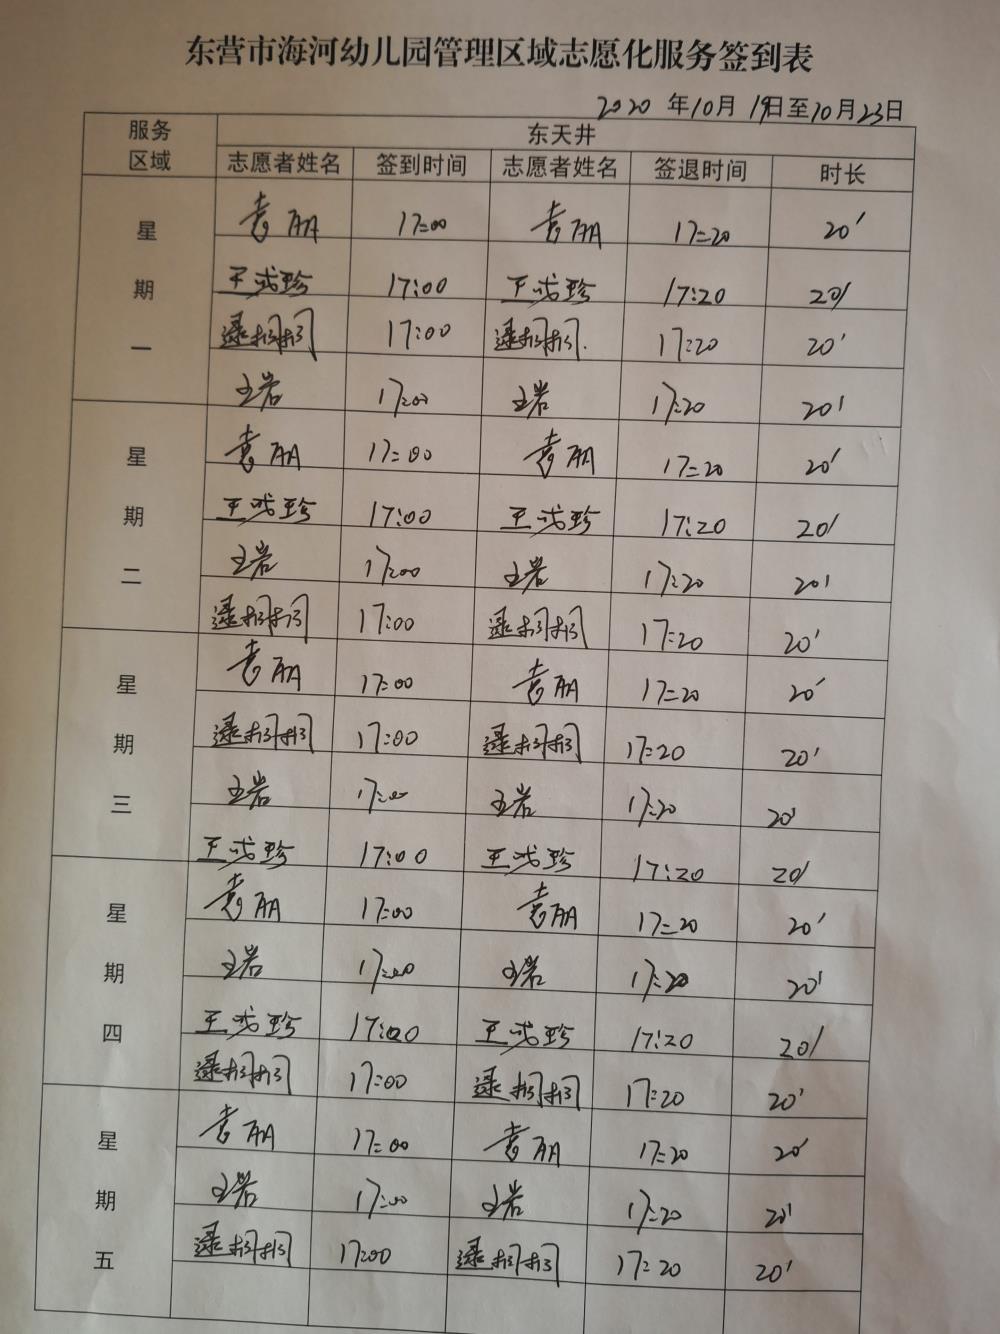 东营市海河幼儿园管理区域志愿化服务签到表
2020 年10月 19日至10月23日
服务区域 东天井
志愿者姓名 签到时间 志愿者姓名 签退时间 时长
星期一
袁丽 17:00 袁丽 17:20 20'
王戎珍 17:00 王戎珍 17:20 20'
逯栩栩 17:00 逯栩栩. 17:20 20'
王岩 17:00 王岩 17:20 20'
星期二
袁丽 17:00 袁丽 17:20 20'
王戎珍 17:00 王戎珍 17:20 20'
王岩 17:00 王岩 17:20 20'
逯栩栩 17:00 逯栩栩 17:20 20'
星期三
袁丽 17:00 袁丽 17:20 20'
逯栩栩 17:00 逯栩栩 17:20 20'
王岩 17:00 王岩 17:20 20'
王戎珍 17:00 王戎珍 17:20 20'
星期四
袁丽 17:00 袁丽 17:20 20'
王岩 17:00 王岩 17:20 20'
王戎珍 17:00 王戎珍 17:20 20'
逯栩栩 17:00 逯栩栩 17:20 20'
星期五
袁丽 17:00 袁丽 17:20 20'
王岩 17:00 王岩 17:20 20'
逯栩栩 17:00 逯栩栩 17:20 20'